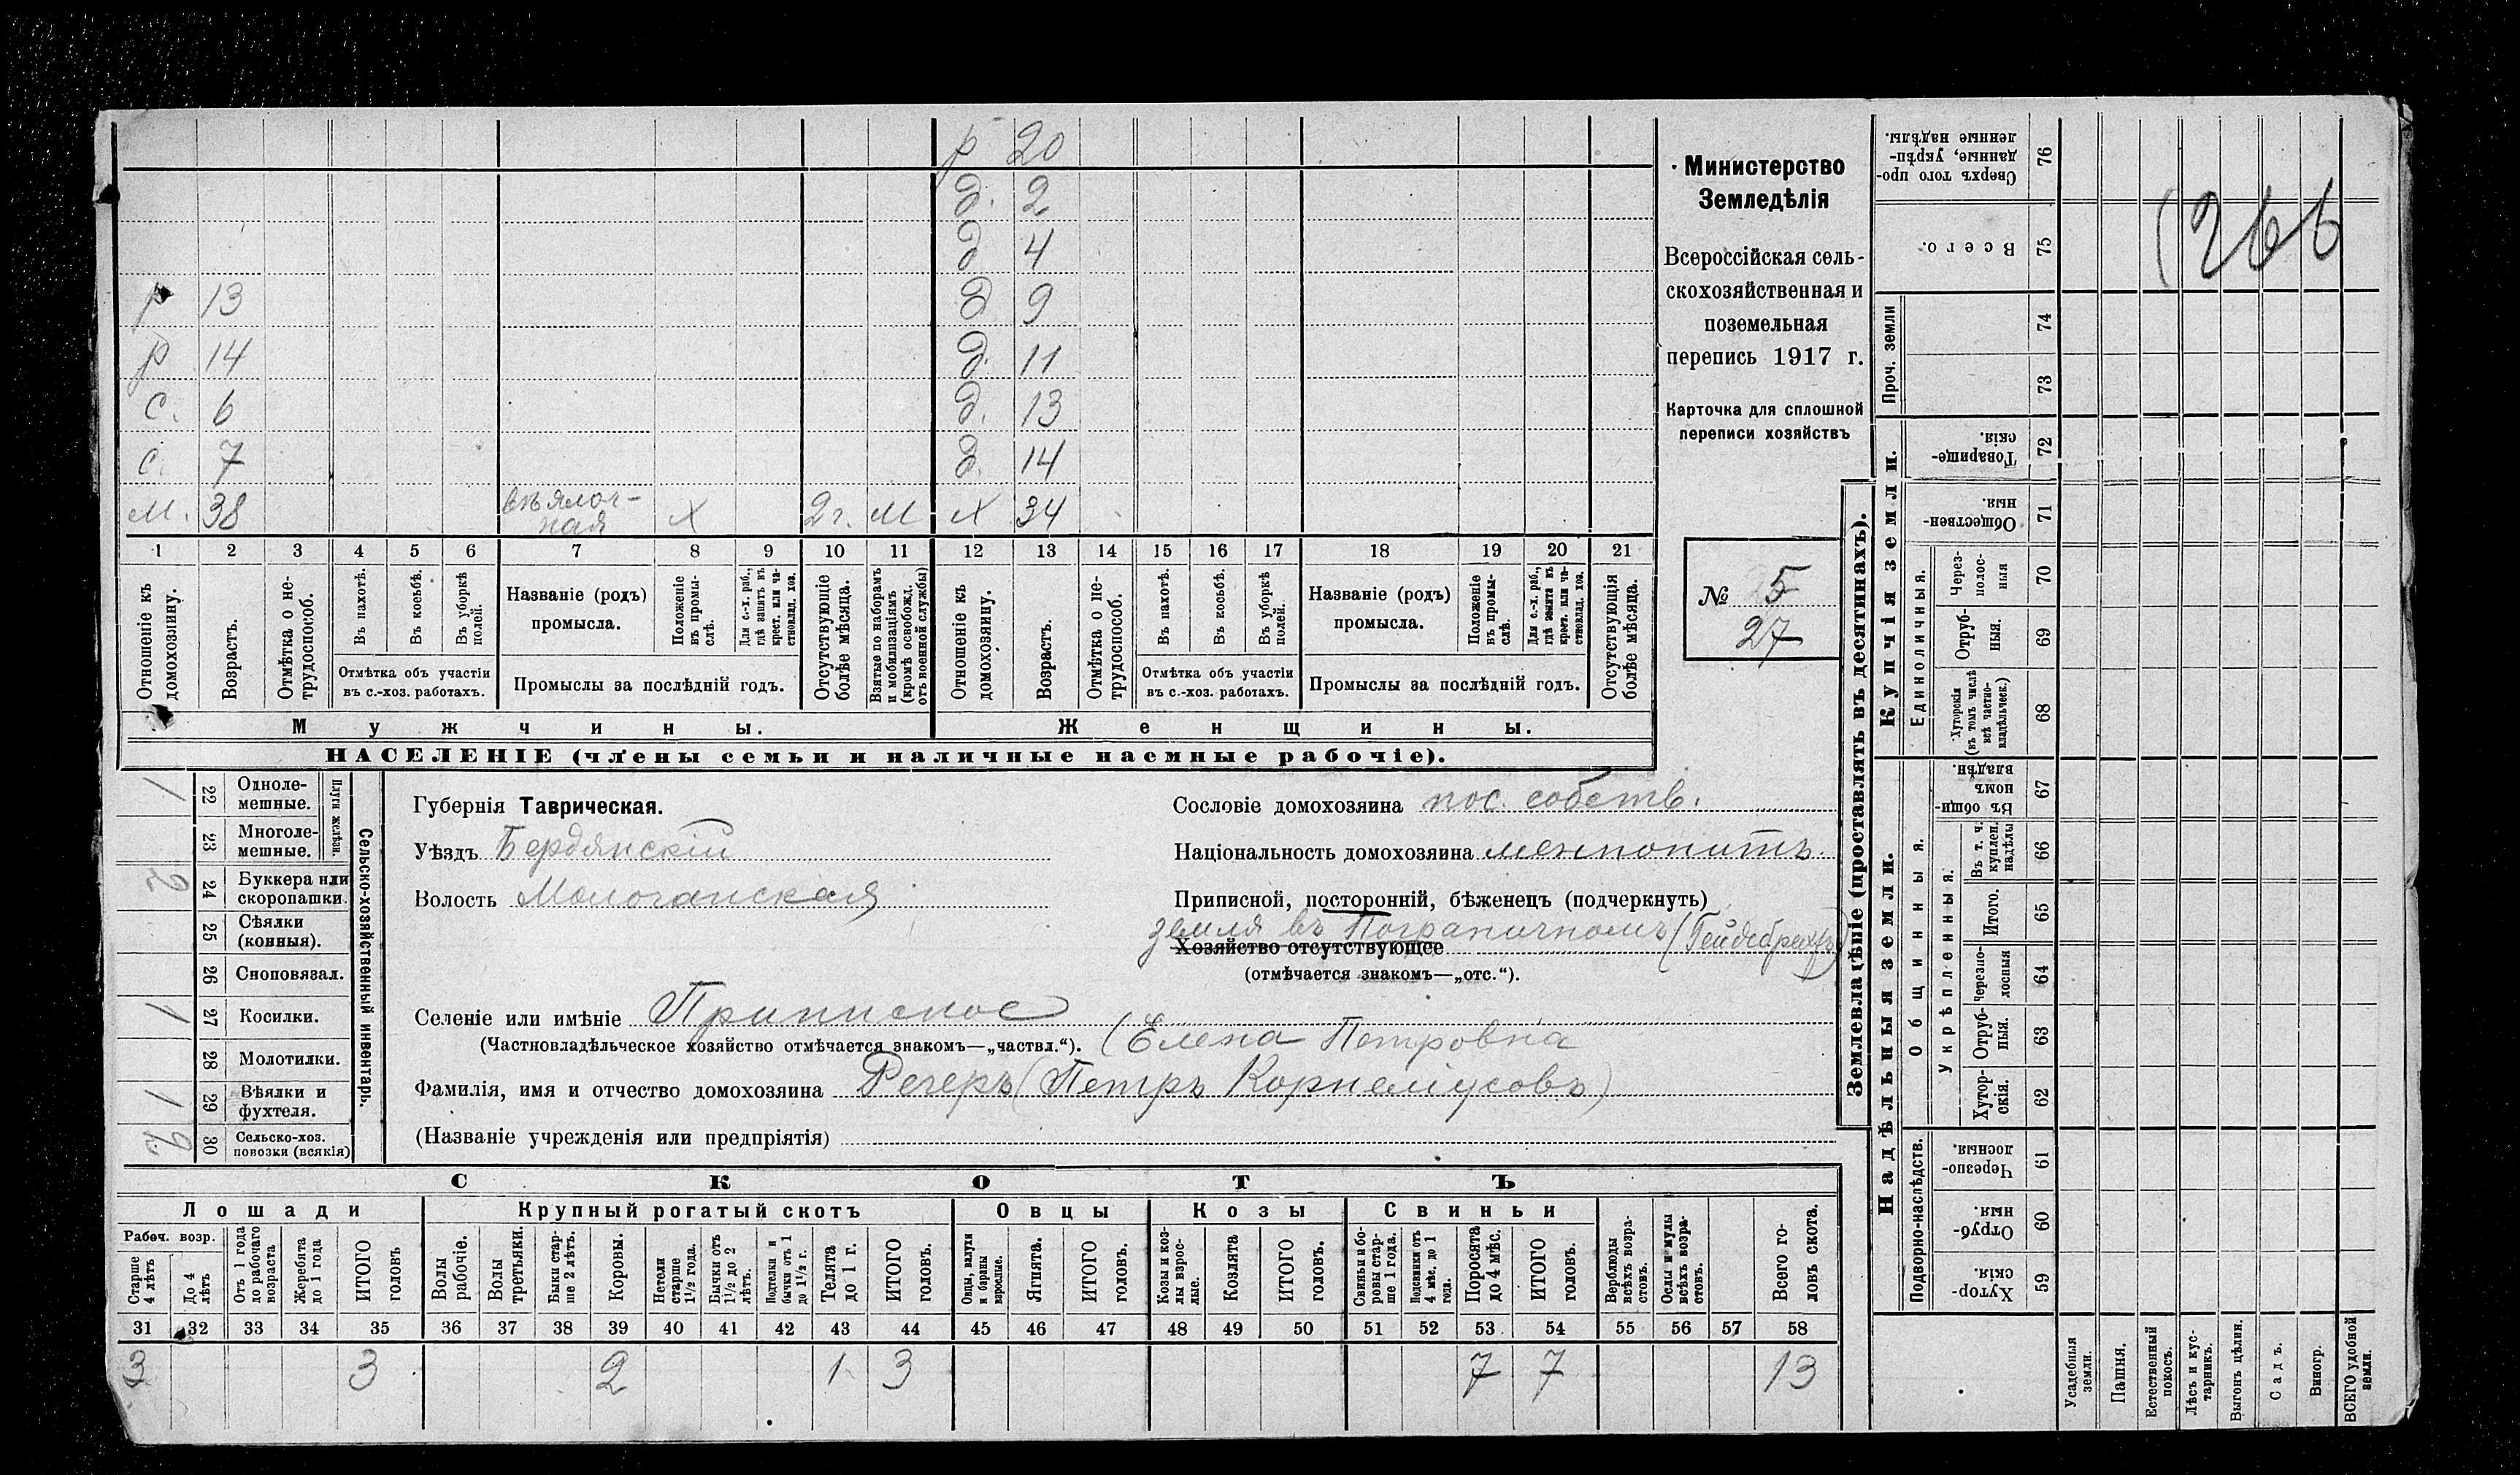 р 20
д. 2
д 4
р 13 д 9
р 14 д. 11
с. 6 д. 13
с. 7 д. 14
м. 38 вѣялоч-
ная х 2 г. м х 34
1 2 3 4 5 6 7 8 9 10 11 12 13 14 15 16 17 18 19 20 21
Отношеніе къ домохозяину.
Возрастъ.
Отмѣтка о не-трудоспособ.
Въ пахотѣ.
Въ косьбѣ.
Въ уборкѣ полей.
Отмѣтка объ участіи
въ с.-хоз. работахъ.
Названіе (родъ)
промысла.
Положеніе въ промы-слѣ.
Для с.-х. раб., гдѣ занятъ въ крест. или ча-стновлад. хоз.
Промыслы за послѣдній годъ.
Отсутствующіе болѣе мѣсяца.
Взятые по наборамъ и мобилизаціямъ (кромѣ освобожд. отъ военной службы)
Отношеніе къ домохозяину.
Возрастъ.
Отмѣтка о не-трудоспособ.
Въ пахотѣ.
Въ косьбѣ.
Въ уборкѣ полей.
Отмѣтка объ участіи
въ с.-хоз. работахъ.
Названіе (родъ)
промысла.
Положеніе въ промы-слѣ.
Для с.-х. раб., гдѣ занята въ крест. или ча-стновлад. хоз.
Промыслы за послѣдній годъ.
Отсутствующія болѣе мѣсяца.
Мужчины. Женщины.
НАСЕЛЕНІЕ (члены семьи и наличные наемные рабочіе).
Министерство
Земледѣлія
Всероссійская сель-
скохозяйственная и
поземельная
перепись 1917 г.
Карточка для сплошной
переписи хозяйствъ
№ 5
27
Сельско-хозяйственный инвентарь.
Плуги желѣзн.
1 22 Одноле-мешные.
23 Многоле-мешные.
2 24 Буккера или скоропашки.
25 Сѣялки (конныя).
26 Сноповязал.
1 27 Косилки.
28 Молотилки.
1 29 Вѣялки и фухтеля.
2 30 Сельско-хоз. повозки (всякія)
Губернія Таврическая.
Уѣздъ Бердянскій
Волость Молочанская
Сословіе домохозяина пос. собств.
Національность домохозяина менпонитъ.
Приписной, посторонній, бѣженецъ (подчеркнуть)
земля въ Пограничномъ (Гейдебрехтъ)
Хозяйство отсутствующее
(отмѣчается знакомъ—„отс.“).
Селеніе или имѣніе Приписное
(Частновладѣльческое хозяйство отмѣчается знакомъ—„частвл.“). (Елена Петровна
Фамилія, имя и отчество домохозяина Регеръ (Петръ Корнеліусовъ)
(Названіе учрежденія или предпріятія)
СКОТЪ
Лошади Крупный рогатый скотъ Овцы Козы Свиньи
Рабоч. возр.
Старше 4 лѣтъ
До 4 лѣтъ
Отъ 1 года до рабочаго возраста
Жеребята до 1 года
ИТОГО головъ
Волы рабочіе.
Волы третьяки.
Быки стар-ше 2 лѣтъ.
Коровы.
Нетели старше 1½ года.
Бычки отъ 1½ до 2 лѣтъ.
Подтелки и бычки отъ 1 до 1½ г.
Телята до 1 г.
ИТОГО головъ.
Овцы, валухи и бараны взрослые.
Ягнята.
ИТОГО головъ.
Козы и коз-лы взрос-лые.
Козлята
ИТОГО головъ.
Свиньи и бо-ровы стар-ше 1 года.
Подсвинки отъ 4 мѣс. до 1 года.
Поросята до 4 мѣс.
ИТОГО головъ.
Верблюды всѣхъ возра-стовъ.
Ослы и мулы всѣхъ возра-стовъ.
Всего го-ловъ скота.
31 32 33 34 35 36 37 38 39 40 41 42 43 44 45 46 47 48 49 50 51 52 53 54 55 56 57 58
3 3 2 1 3 7 7 13
Землевладѣніе (проставлять въ десятинахъ).
Купчія земли.
Надѣльныя земли.
Сверхъ того про-данные, укрѣп-ленные надѣлы. 76
Всего. 75
Проч. земли 74
73
Товарище-скія. 72
Обществен-ныя 71
Единоличныя.
Через-полос-ныя 70
Отруб-ныя. 69
Хуторскія (въ томъ числѣ всѣ частно-владѣльческ.) 68
Общинныя.
Въ общи-номъ владѣн. 67
Укрѣпленныя.
Въ т. ч. куплен. надѣлы 66
Итого. 65
Черезпо-лосныя 64
Отруб-ныя. 63
Хутор-скія. 62
Подворно-наслѣдств.
Черезпо-лосныя. 61
Отруб-ныя. 60
Хутор-скія. 59
Усадебныя земли.
Пашня.
Естественный покосъ.
Лѣсъ и кус-тарникъ.
Выгонъ цѣлин.
Садъ.
Виногр.
ВСЕГО удобной земли.
(266